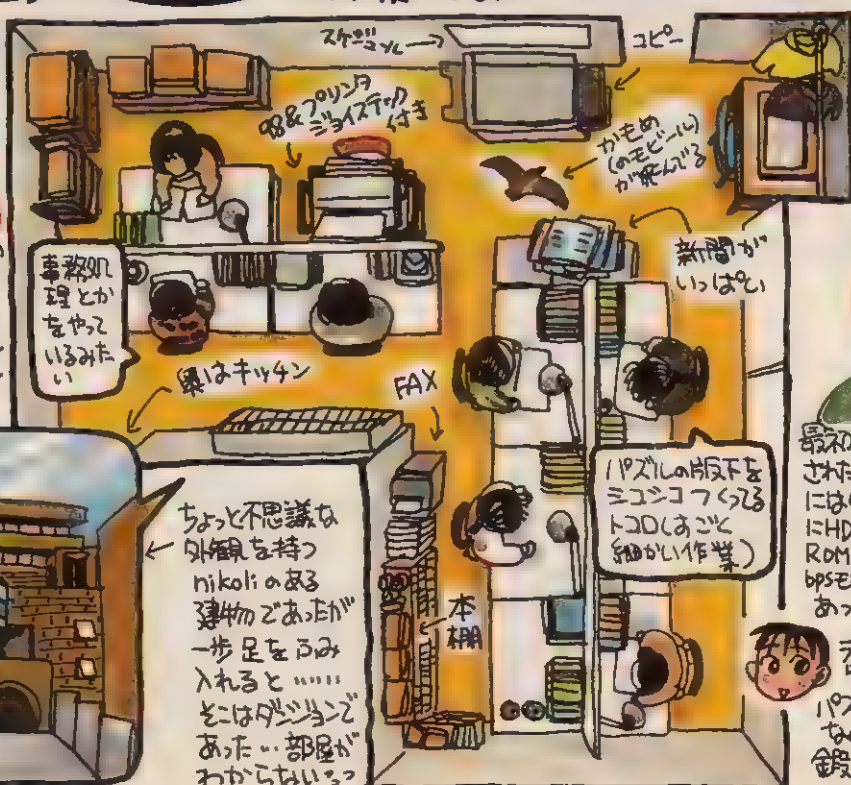 スケジュール
コピー
98&プリンタ
ジョイスティック
付き
かもめ
(のモビール)
が飛んでる
新聞が
いっぱい
事務処
理とか
をやって
いるみた
い
奥はキッチン
FAX
パズルの版下を
シコシコつくってる
トコロ(すごく
細かい作業)
ちょっと不思議な
外観を持つ
nikoliのある
建物であったが
一歩足をふみ
入れると……
そこはダンジョンで
あった…部屋が
わからない…
本
棚
最初の
された
には
にHD
ROM
bpsモ
あっ
パズ